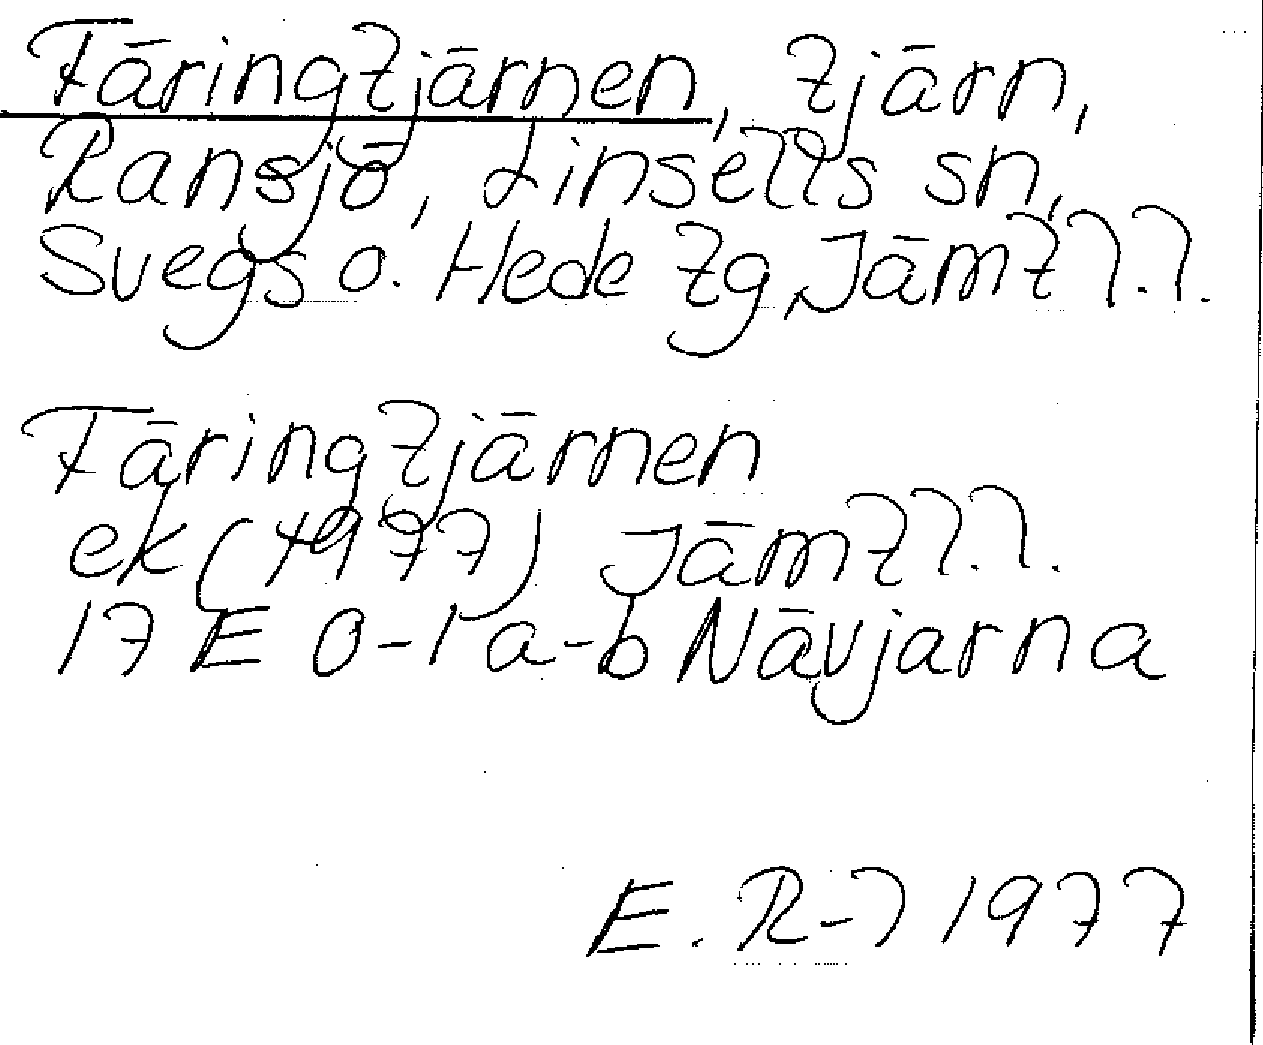 Färingtjärnen, tjärn,
Ransjö, Linsells sn,
Svegs o. Hede tg, Jämtl.l.
Färingtjärnen
ek (1977) Jämtl.l.
17 E 0-1 a-b Nävjarna
E. R-l 1977